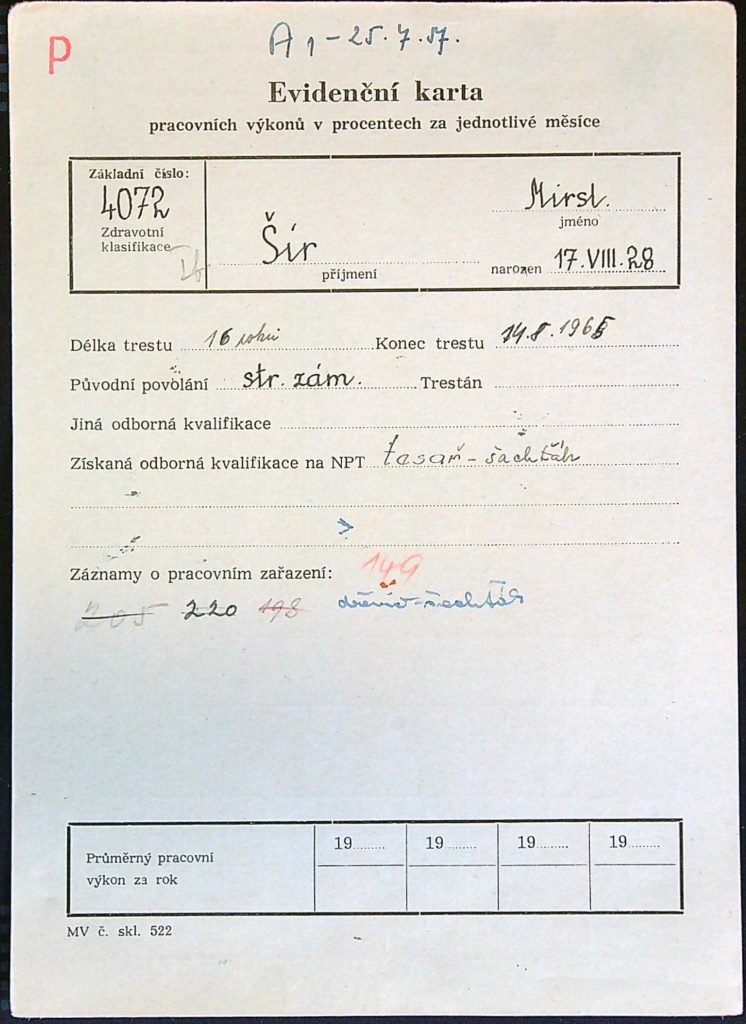 P
A 1 - 25.7.57.
Evidenční karta
pracovních výkonů v procentech za jednotlivé měsíce
Základní číslo:
4072
Zdravotní
klasifikace
Šír
příjmení
Mirsl.
jméno
narozen 17.VIII.28
Délka trestu 16 roků Konec trestu 14.8.1965
Původní povolání str. zám. Trestán
Jiná odborná kvalifikace
Získaná odborná kvalifikace na NPT tesař - šachťák
Záznamy o pracovním zařazení: 149
205 220 198
Průměrný pracovní
výkon za rok
19........ 19........ 19........ 19........
MV č. skl. 522